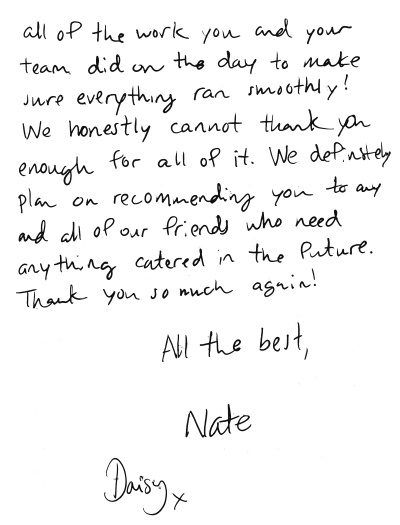 all of the work you and your
team did on the day to make
sure everything ran smoothly!
We honestly cannot thank you
enough for all of it. We definitely
plan on recommending you to any
and all of our friends who need
anything catered in the future.
Thank you so much again!
All the best,
Nate
Daisy x